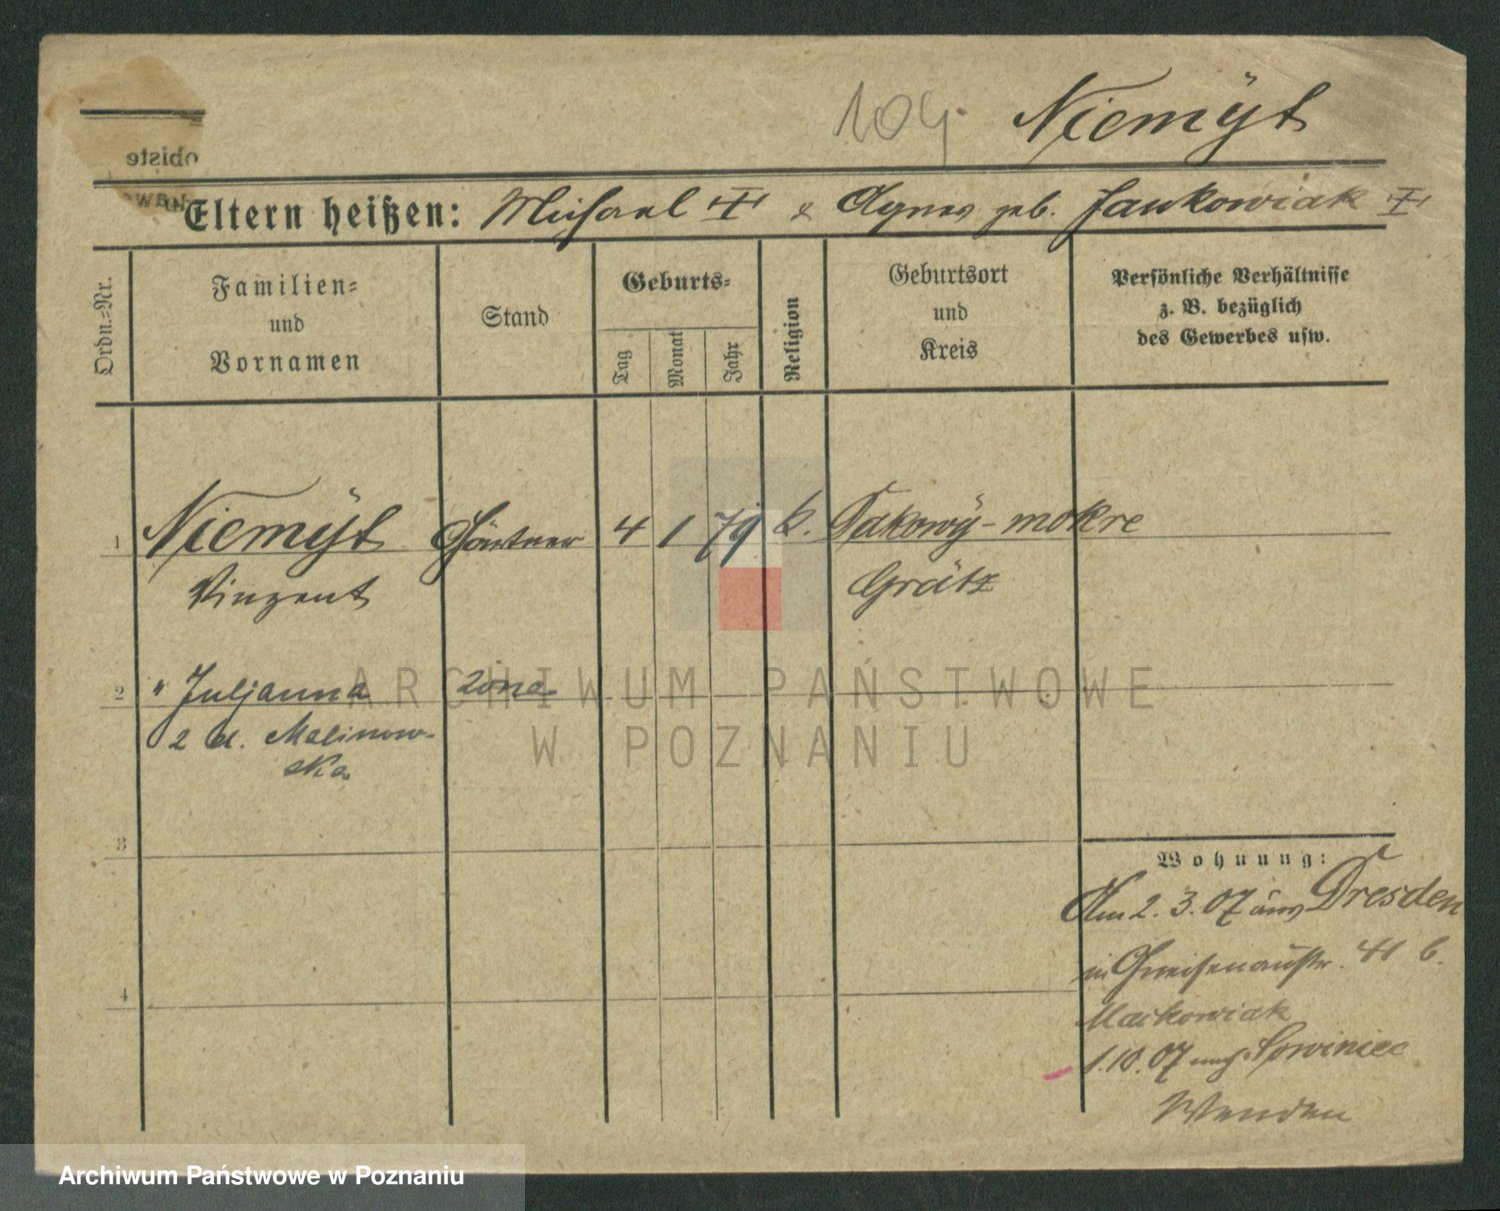 104
Niemÿt
obiste
Eltern heißen: Michael † & Agnes geb. Jankowiak †
Ordn.=Nr.
Familien=
und
Vornamen
Stand
Geburts=
Tag
Monat
Jahr
Religion
Geburtsort
und
Kreis
Persönliche Verhältnisse
z. B. bezüglich
des Gewerbes usw.
1 Niemÿt Gärtner 4 1 79 k. Ptakowÿ-mokre
Vinzent Grätz
2 " Juljanna żona
2 d. Malinow-
ska
3
4
Wohnung:
Am 2.3.07 aus Dresden
in Gneisenaustr. 41 b.
Maćkowiak
1.10.07 nach Lowiniec
ARCHIWUM PAŃSTWOWE
W POZNANIU
Archiwum Państwowe w Poznaniu